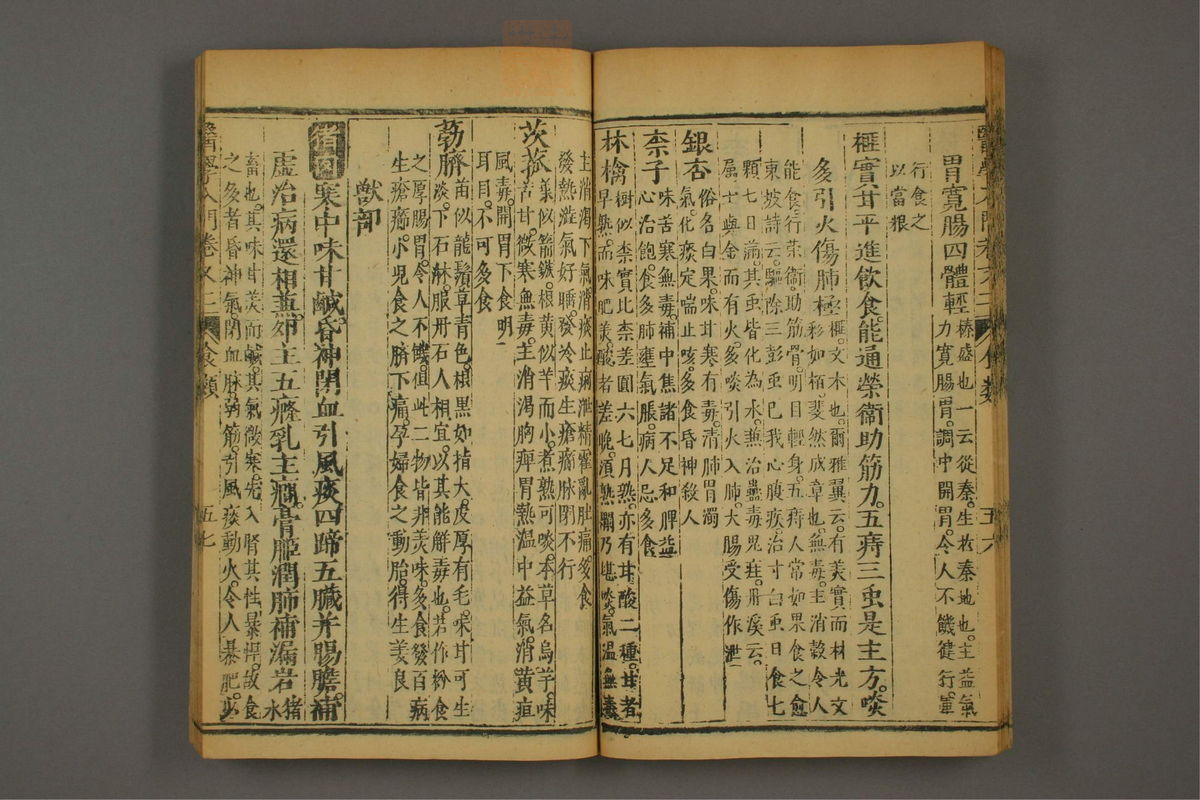 胃寬腸四體輕
榛盛也一云從秦生故秦地也主益氣
力寬腸胃調中開胃令人不饑健行軍
行食之
以當粮
榧實甘平進飲食能通榮衛助筋力五痔三虫是主方啖
多引火傷肺極
榧文木也爾雅翼云有美實而材光文
彩如栢斐然成章也無毒主消穀令人
能食行榮衛助筋骨明目輕身五痔人常如果食之愈
東坡詩云驅除三彭虫已我心腹疾治寸白虫日食七
顆七日滿其虫皆化為水無治蠱毒鬼疰丹溪云
属土與金而有火多啖引火入肺大腸受傷作泄
銀杏
俗名白果味甘寒有毒清肺胃濁
氣化痰定喘止咳多食昏神殺人
柰子
味苦寒無毒補中焦諸不足和脾益
心治飽食多肺壅氣脹病人忌多食
林檎
樹似柰實比柰差圓六七月熟亦有甘酸二種甘者
早熟而味肥美酸者差晚須熟爛乃堪啖氣温無毒
主消渴下氣消痰止痢泄精霍亂肚痛多食
發熱澁氣好睡發冷痰生瘡癤脉閉不行
茨菰
葉似箭鏃根黄似芋而小煮熟可啖本草名烏芋味
苦甘微寒無毒主消渴胸痺胃熱温中益氣消黄疸
風毒開胃下食明
耳目不可多食
葧臍
苗似龍鬚草青色根黒如指大皮厚有毛味甘可生
淡下石淋服丹石人相宜以其能解毒也若作粉食
之厚腸胃令人不饑但此二物皆非美味多食發百病
生瘡癤小兒食之臍下痛孕婦食之動胎得生姜良
獸部
猪肉寒中味甘鹹昏神閉血引風痰四蹄五臟并腸膽補
虚治病還相兼卵主五癃乳主癇膏脂潤肺補漏岩
猪水
畜也其味甘美而鹹其氣微寒先入腎其性暴悍故食
之多者昏神氣閉血脉弱筋引風痰動火令人暴肥
醫學入門卷又二
食類
五七
五六